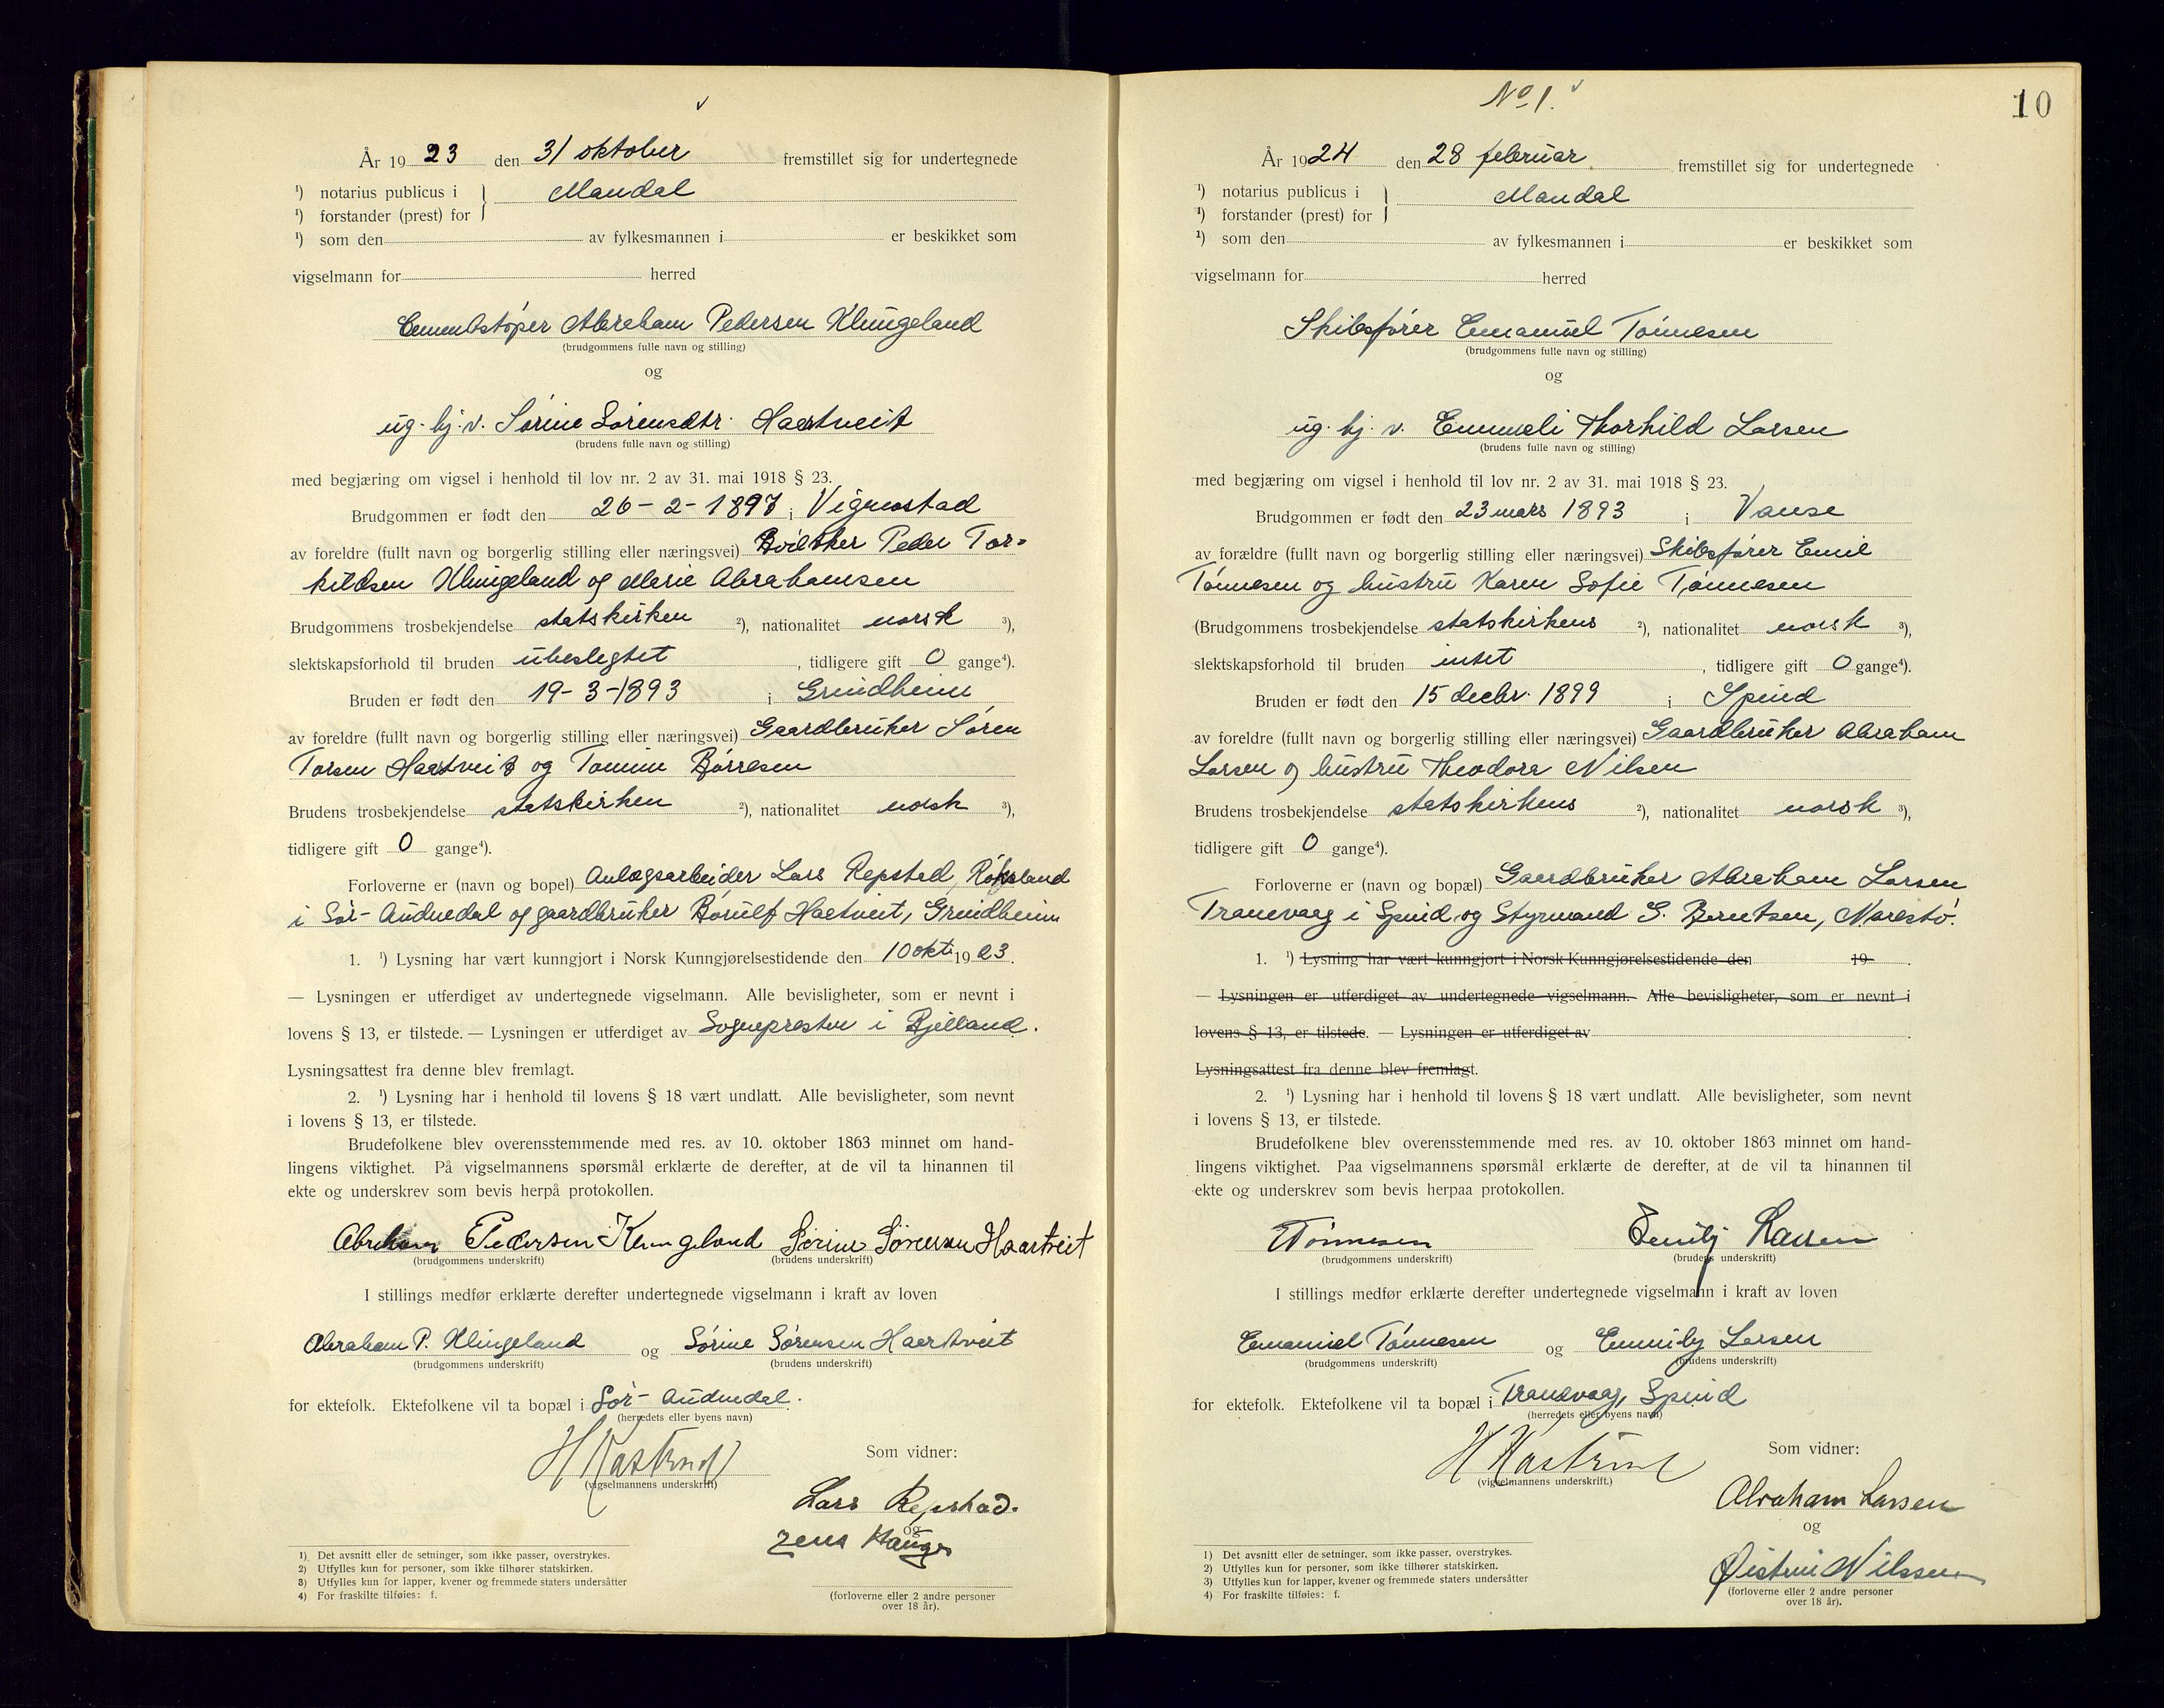 År 19 23 den 31 oktober fremstillet sig for undertegnede
¹) notarius publicus i } Mandal
¹) forstander (prest) for
¹) som den av fylkesmannen i er beskikket som
vigselmann for herred
Cementstøper Abraham Pedersen Klungeland
(brudgommens fulle navn og stilling)
og
ug. bj. v. Sørine Sørensdtr. Haartveit
(brudens fulle navn og stilling)
med begjæring om vigsel i henhold til lov nr. 2 av 31. mai 1918 § 23.
Brudgommen er født den 26-2-1897 i Vigmostad
av foreldre (fullt navn og borgerlig stilling eller næringsvei) Peder Tor-
kildsen Klungeland og Marie Abrahamsen
Brudgommens trosbekjendelse statskirken ²), nationalitet norsk ³),
slektskapsforhold til bruden ubeslegtet , tidligere gift 0 gange⁴).
Bruden er født den 19-3-1893 i Grindheim
av foreldre (fullt navn og borgerlig stilling eller næringsvei) Gaardbruker Søren
Torsen Haartveit og Tomine Børresen
Brudens trosbekjendelse statskirken ²), nationalitet norsk ³),
tidligere gift 0 gange⁴).
Forloverne er (navn og bopel) Anlægsarbeider Lars Repstad,
i Sør-Audnedal og gaardbruker Børulf Haatveit, Grindheim
1. ¹) Lysning har vært kunngjort i Norsk Kunngjørelsestidende den 10 okt. 19 23.
— Lysningen er utferdiget av undertegnede vigselmann. Alle bevisligheter, som er nevnt i
lovens § 13, er tilstede. — Lysningen er utferdiget av Sognepresten i Bjelland.
Lysningsattest fra denne blev fremlagt.
2. ¹) Lysning har i henhold til lovens § 18 vært undlatt. Alle bevisligheter, som nevnt
i lovens § 13, er tilstede.
Brudefolkene blev overensstemmende med res. av 10. oktober 1863 minnet om hand-
lingens viktighet. På vigselmannens spørsmål erklærte de derefter, at de vil ta hinannen til
ekte og underskrev som bevis herpå protokollen.
Abraham Pedersen Klungeland Sørine Sørensen Haartveit
(brudgommens underskrift) (brudens underskrift)
I stillings medfør erklærte derefter undertegnede vigselmann i kraft av loven
Abraham P. Klingeland og Sørine Sørensen Haartveit
(brudgommens underskrift) (brudens underskrift)
for ektefolk. Ektefolkene vil ta bopæl i Sør-Audnedal.
(herredets eller byens navn)
H Kastrud
(vigselmannens underskrift)
Som vidner:
Lars Repstad.
og
Jens Hauge
(forloverne eller 2 andre personer
over 18 år).
1) Det avsnitt eller de setninger, som ikke passer, overstrykes.
2) Utfylles kun for personer, som ikke tilhører statskirken.
3) Utfylles kun for lapper, kvener og fremmede staters undersåtter
4) For fraskilte tilføies: f.
No 1.
10
År 19 24 den 28 februar fremstillet sig for undertegnede
¹) notarius publicus i } Mandal
¹) forstander (prest) for
¹) som den av fylkesmannen i er beskikket som
vigselmann for herred
Skibsfører Emanuel Tønnesen
(brudgommens fulle navn og stilling)
og
ug. bj. v. Emmeli Thorhild Larsen
(brudens fulle navn og stilling)
med begjæring om vigsel i henhold til lov nr. 2 av 31. mai 1918 § 23.
Brudgommen er født den 23 mars 1893 i Vanse
av forældre (fullt navn og borgerlig stilling eller næringsvei) Skibsfører Emil
Tønnesen og hustru Karen Sofie Tønnesen
(Brudgommens trosbekjendelse statskirkens ²), nationalitet norsk ³),
slektskapsforhold til bruden intet , tidligere gift 0 gange⁴).
Bruden er født den 15 decbr. 1899 i Spind
av foreldre (fullt navn og borgerlig stilling eller næringsvei) Gaardbruker Abraham
Larsen og hustru Theodora Nilsen
Brudens trosbekjendelse statskirkens ²), nationalitet norsk ³),
tidligere gift 0 gange⁴).
Forloverne er (navn og bopæl) Gaardbruker Abraham Larsen
Tranevaag i Spind og Styrmand G. Berntsen, Narestø.
1. ¹) Lysning har vært kunngjort i Norsk Kunngjørelsestidende den 19 .
— Lysningen er utferdiget av undertegnede vigselmann. Alle bevisligheter, som er nevnt i
lovens § 13, er tilstede. — Lysningen er utferdiget av .
Lysningsattest fra denne blev fremlagt.
2. ¹) Lysning har i henhold til lovens § 18 vært undlatt. Alle bevisligheter, som nevnt
i lovens § 13, er tilstede.
Brudefolkene blev overensstemmende med res. av 10. oktober 1863 minnet om hand-
lingens viktighet. Paa vigselmannens spørsmål erklærte de derefter, at de vil ta hinannen til
ekte og underskrev som bevis herpaa protokollen.
ETönnesen Emily Larsen
(brudgommens underskrift) (brudens underskrift)
I stillings medfør erklærte derefter undertegnede vigselmann i kraft av loven
Emanuel Tønnesen og Emmily Larsen
(brudgommens underskrift) (brudens underskrift)
for ektefolk. Ektefolkene vil ta bopæl i Tranevaag, Spind
(herredets eller byens navn)
H Kastrud
(vigselmannens underskrift.)
Som vidner:
Abraham Larsen
og
Øistein Nilssen
(forloverne eller 2 andre personer
over 18 år).
1) Det avsnitt eller de setninger, som ikke passer, overstrykes.
2) Utfylles kun for personer, som ikke tilhører statskirken.
3) Utfylles kun for lapper, kvener og fremmede staters undersåtter
4) For fraskilte tilføies: f.